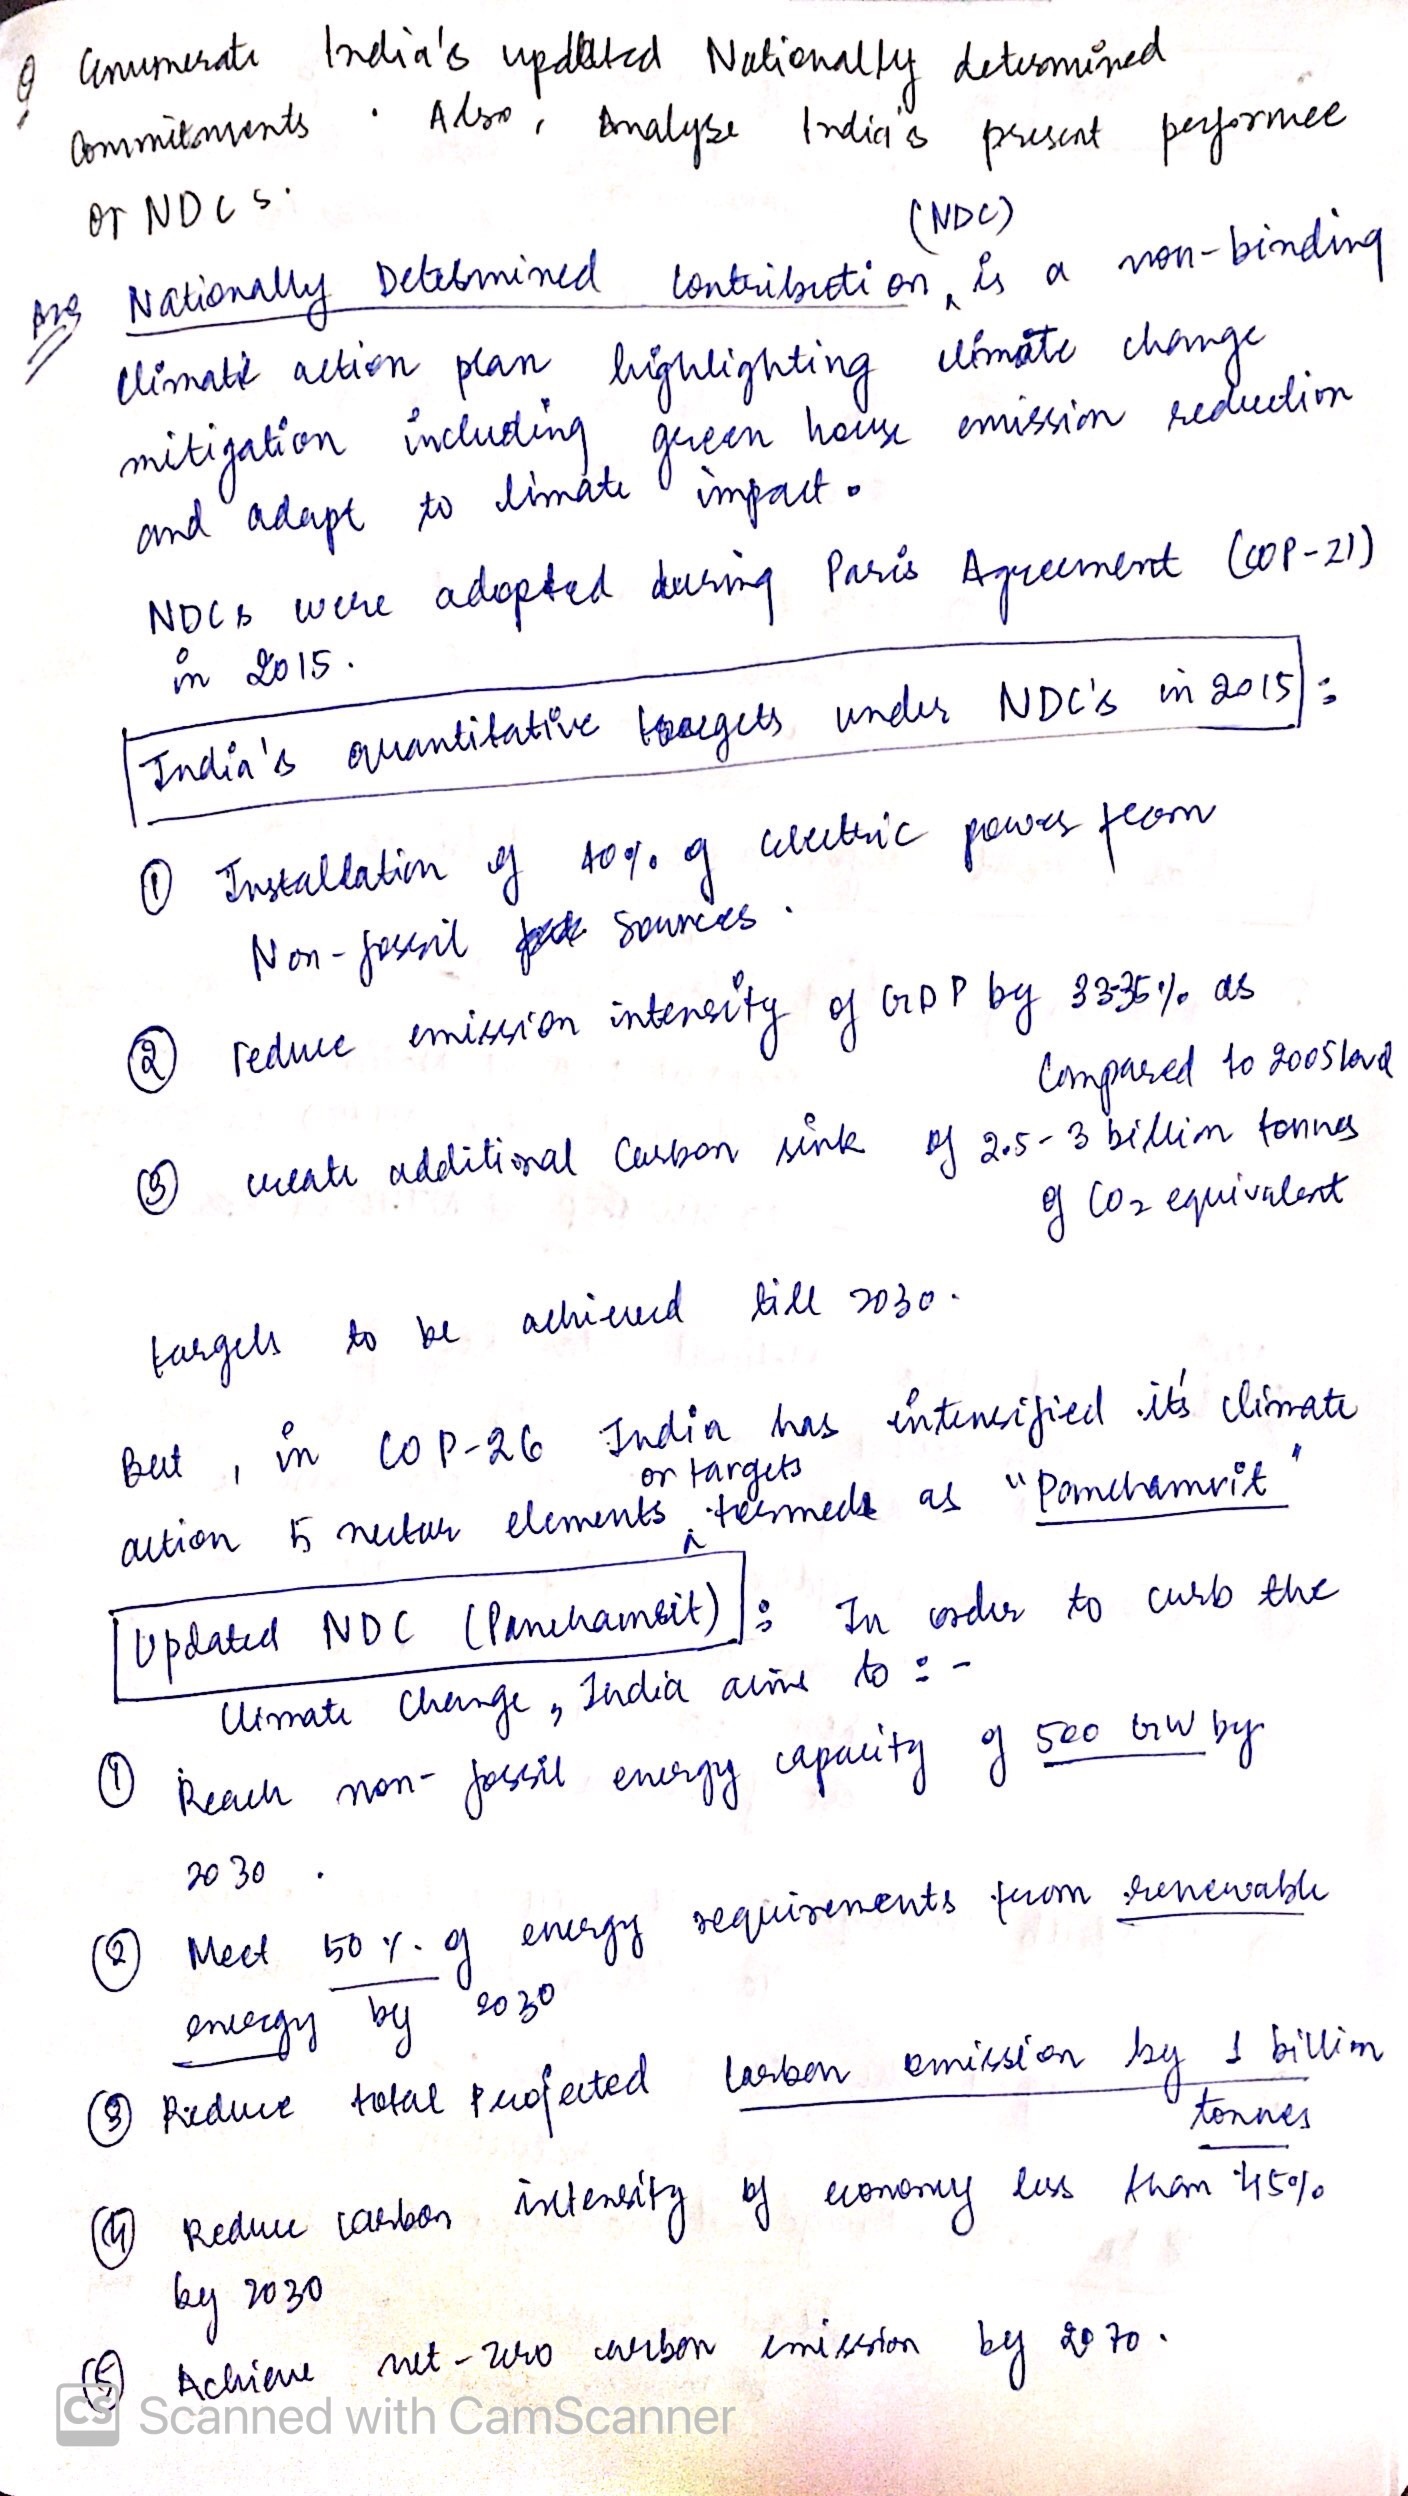 Q Enumerate India's updated Nationally determined
Commitments. Also, Analyse India's present performce
or NDCs.
(NDC)
Ans Nationally Determined Contribution is a non-binding
Climate action plan highlighting climate change
mitigation including green house emission reduction
and adapt to limate impact.
NDCs were adopted during Paris Agreement (COP-21)
in 2015.
India's quantitative targets under NDC's in 2015:
① Installation of 40% of electric power from
Non-fossil sources.
② reduce emission intensity of GDP by 33-35% as
Compared to 2005 level
③ create additional Carbon sink of 2.5-3 billion tonnes
of CO2 equivalent
targets to be achieved till 2030.
But, in COP-26 India has intensified it's climate
or targets
action 5 nectar elements termed as "Panchamrit"
Updated NDC (Panchamrit): In order to curb the
Climate Change, India aims to :-
① Reach non-fossil energy capacity of 500 GW by
2030.
② Meet 50% of energy requirements from renewable
energy by 2030
③ Reduce total Projected carbon emission by 1 billion
tonnes
④ Reduce carbon intensity of economy less than 45%
by 2030
⑤ Achieve net-zero carbon emission by 2070.
CS Scanned with CamScanner